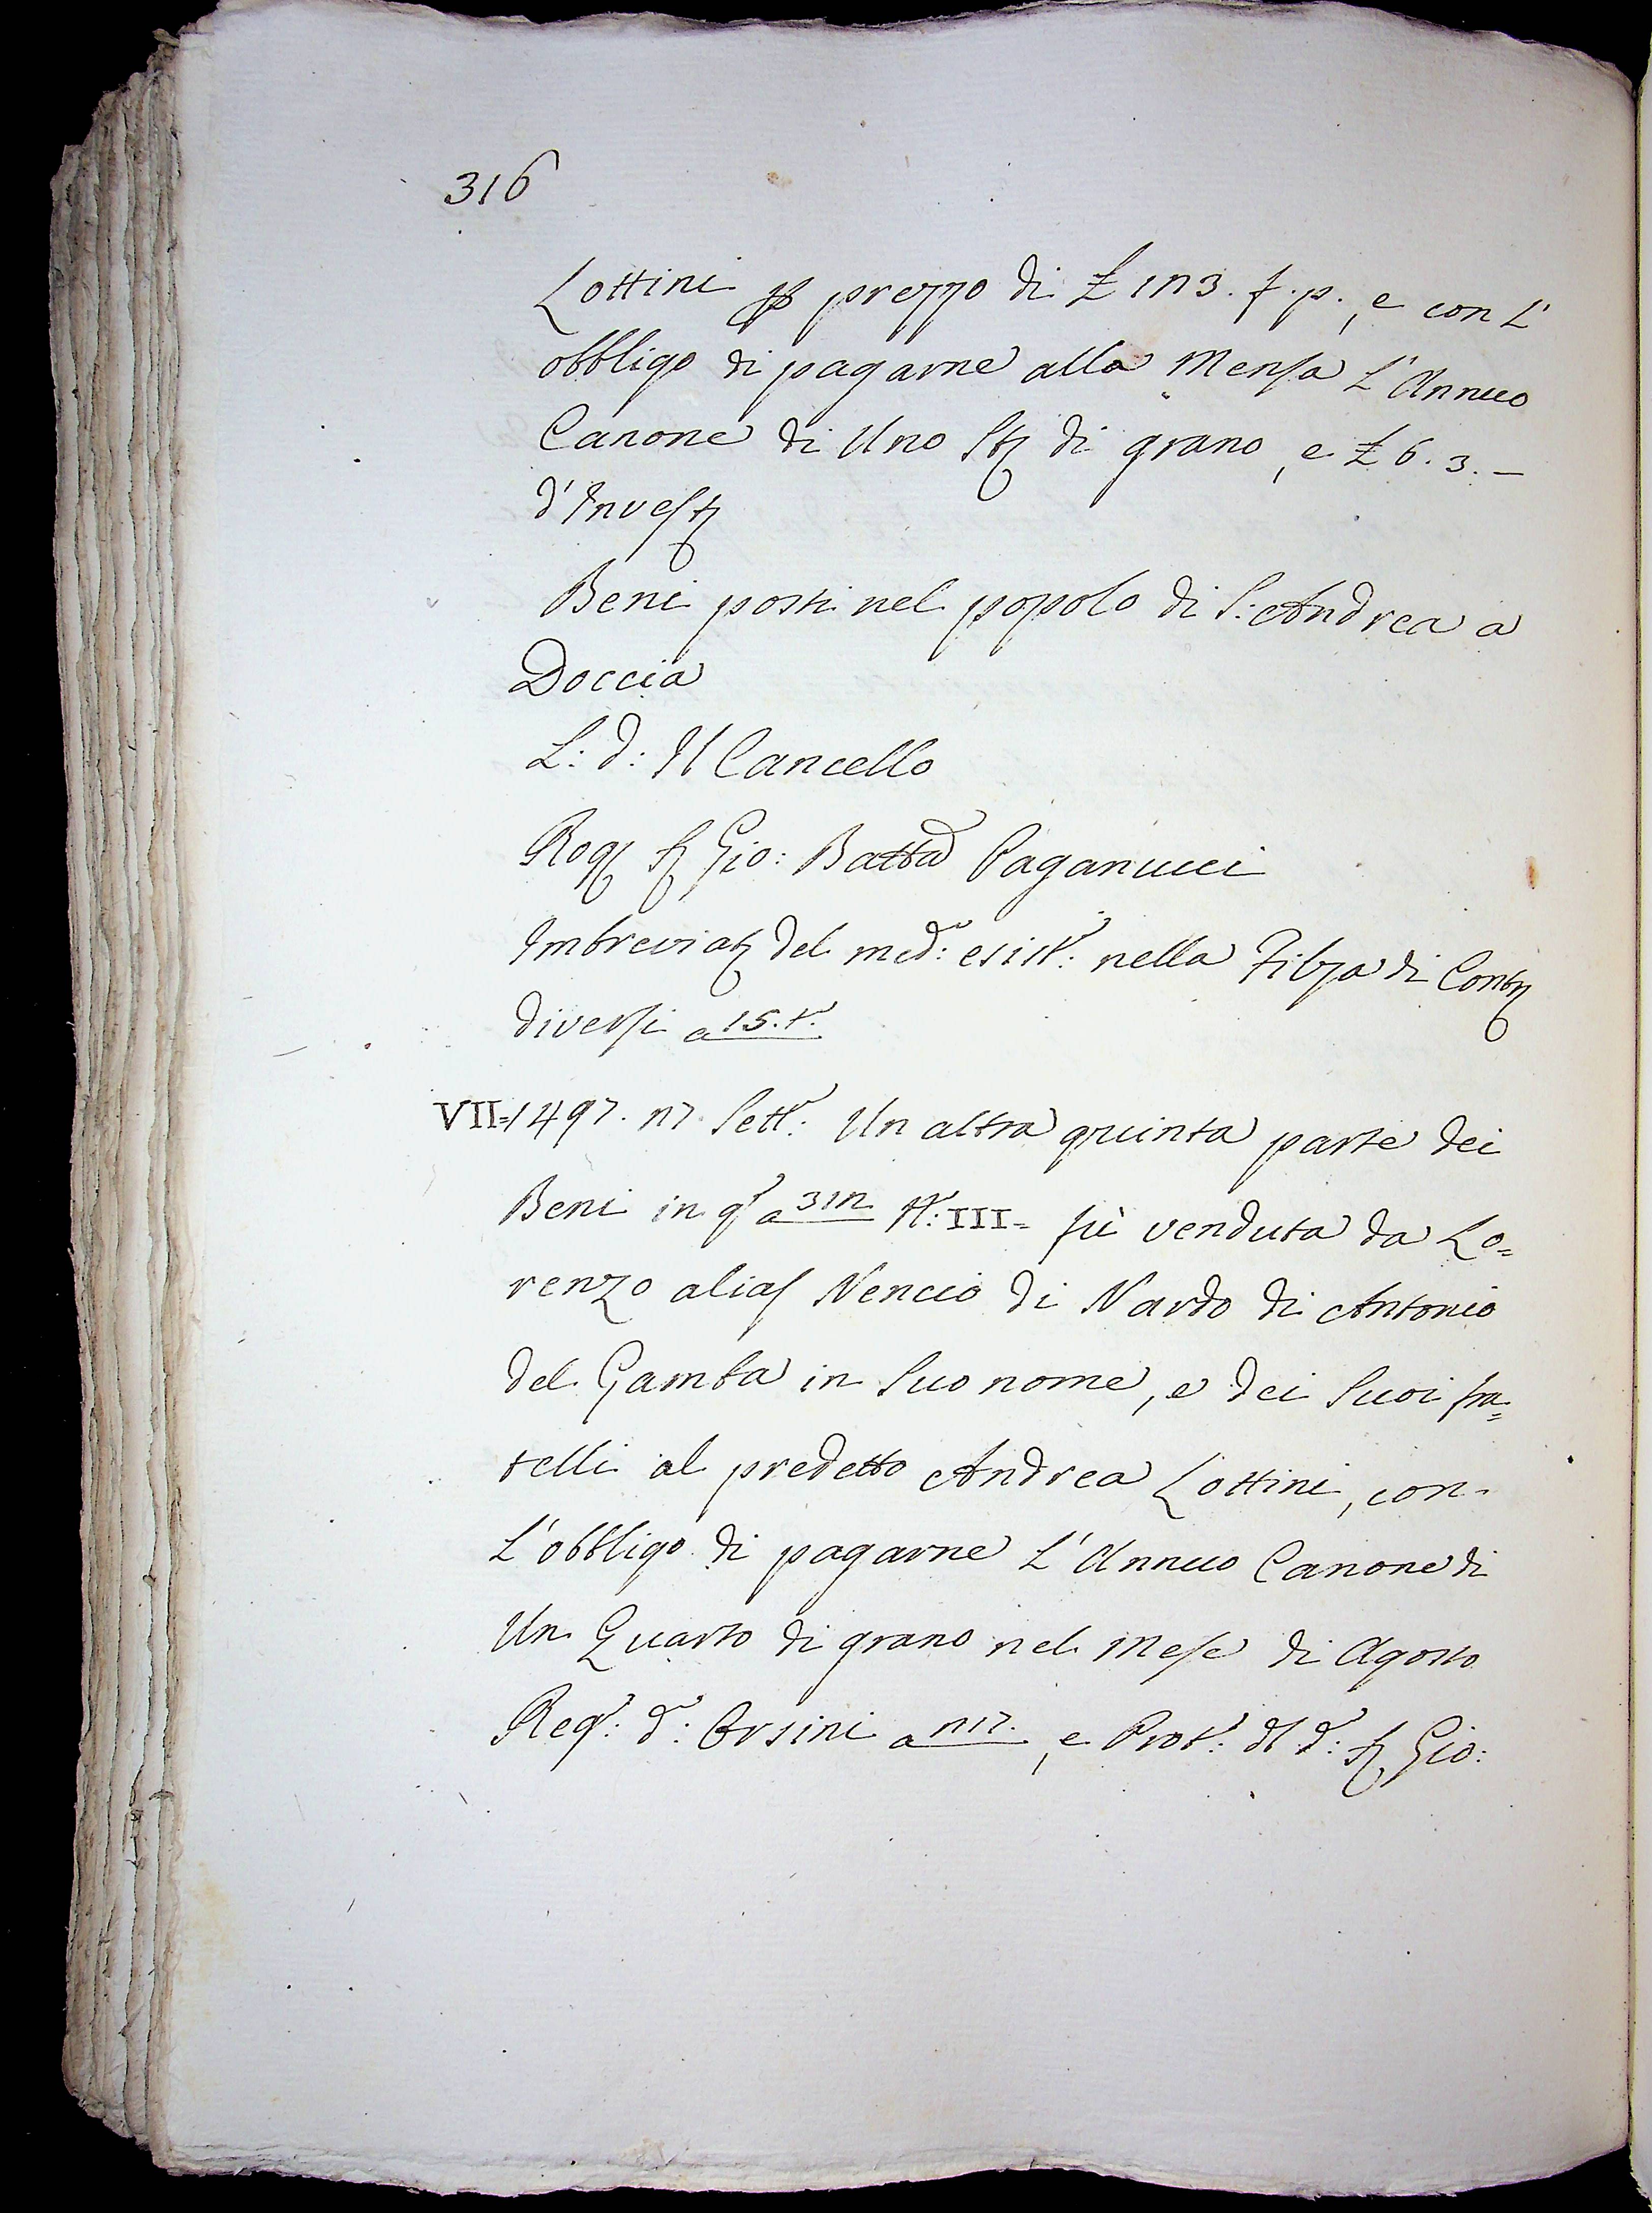 316
Lottini p prezzo di £ 123. f. p., e con L'
obbligo di pagarne alla Mensa L'Annuo
Canone di Uno St. di grano, e £ 6. 3. —
d'Invest.
Beni posti nel popolo di S: Andrea a
Doccia
L: d: Il Cancello
Rog. S. Gio: Batta Paganucci
Imbreviat. del med: esist: nella Filza di Contr.
diversi a 15. t.
VII = 1497. 27. Sett: Un altra quinta parte dei
Beni in q a 312 N: III = fù venduta da Lo=
renzo alias Nencio di Nardo di Antonio
del Gamba in Suo nome, e dei Suoi fra=
telli al predetto Andrea Lottini, con
L'obbligo di pagarne L'Annuo Canone di
Un Quarto di grano nel Mese di Agosto
Reg: d: Orsini a 217., e Prot: dl d: S. Gio: